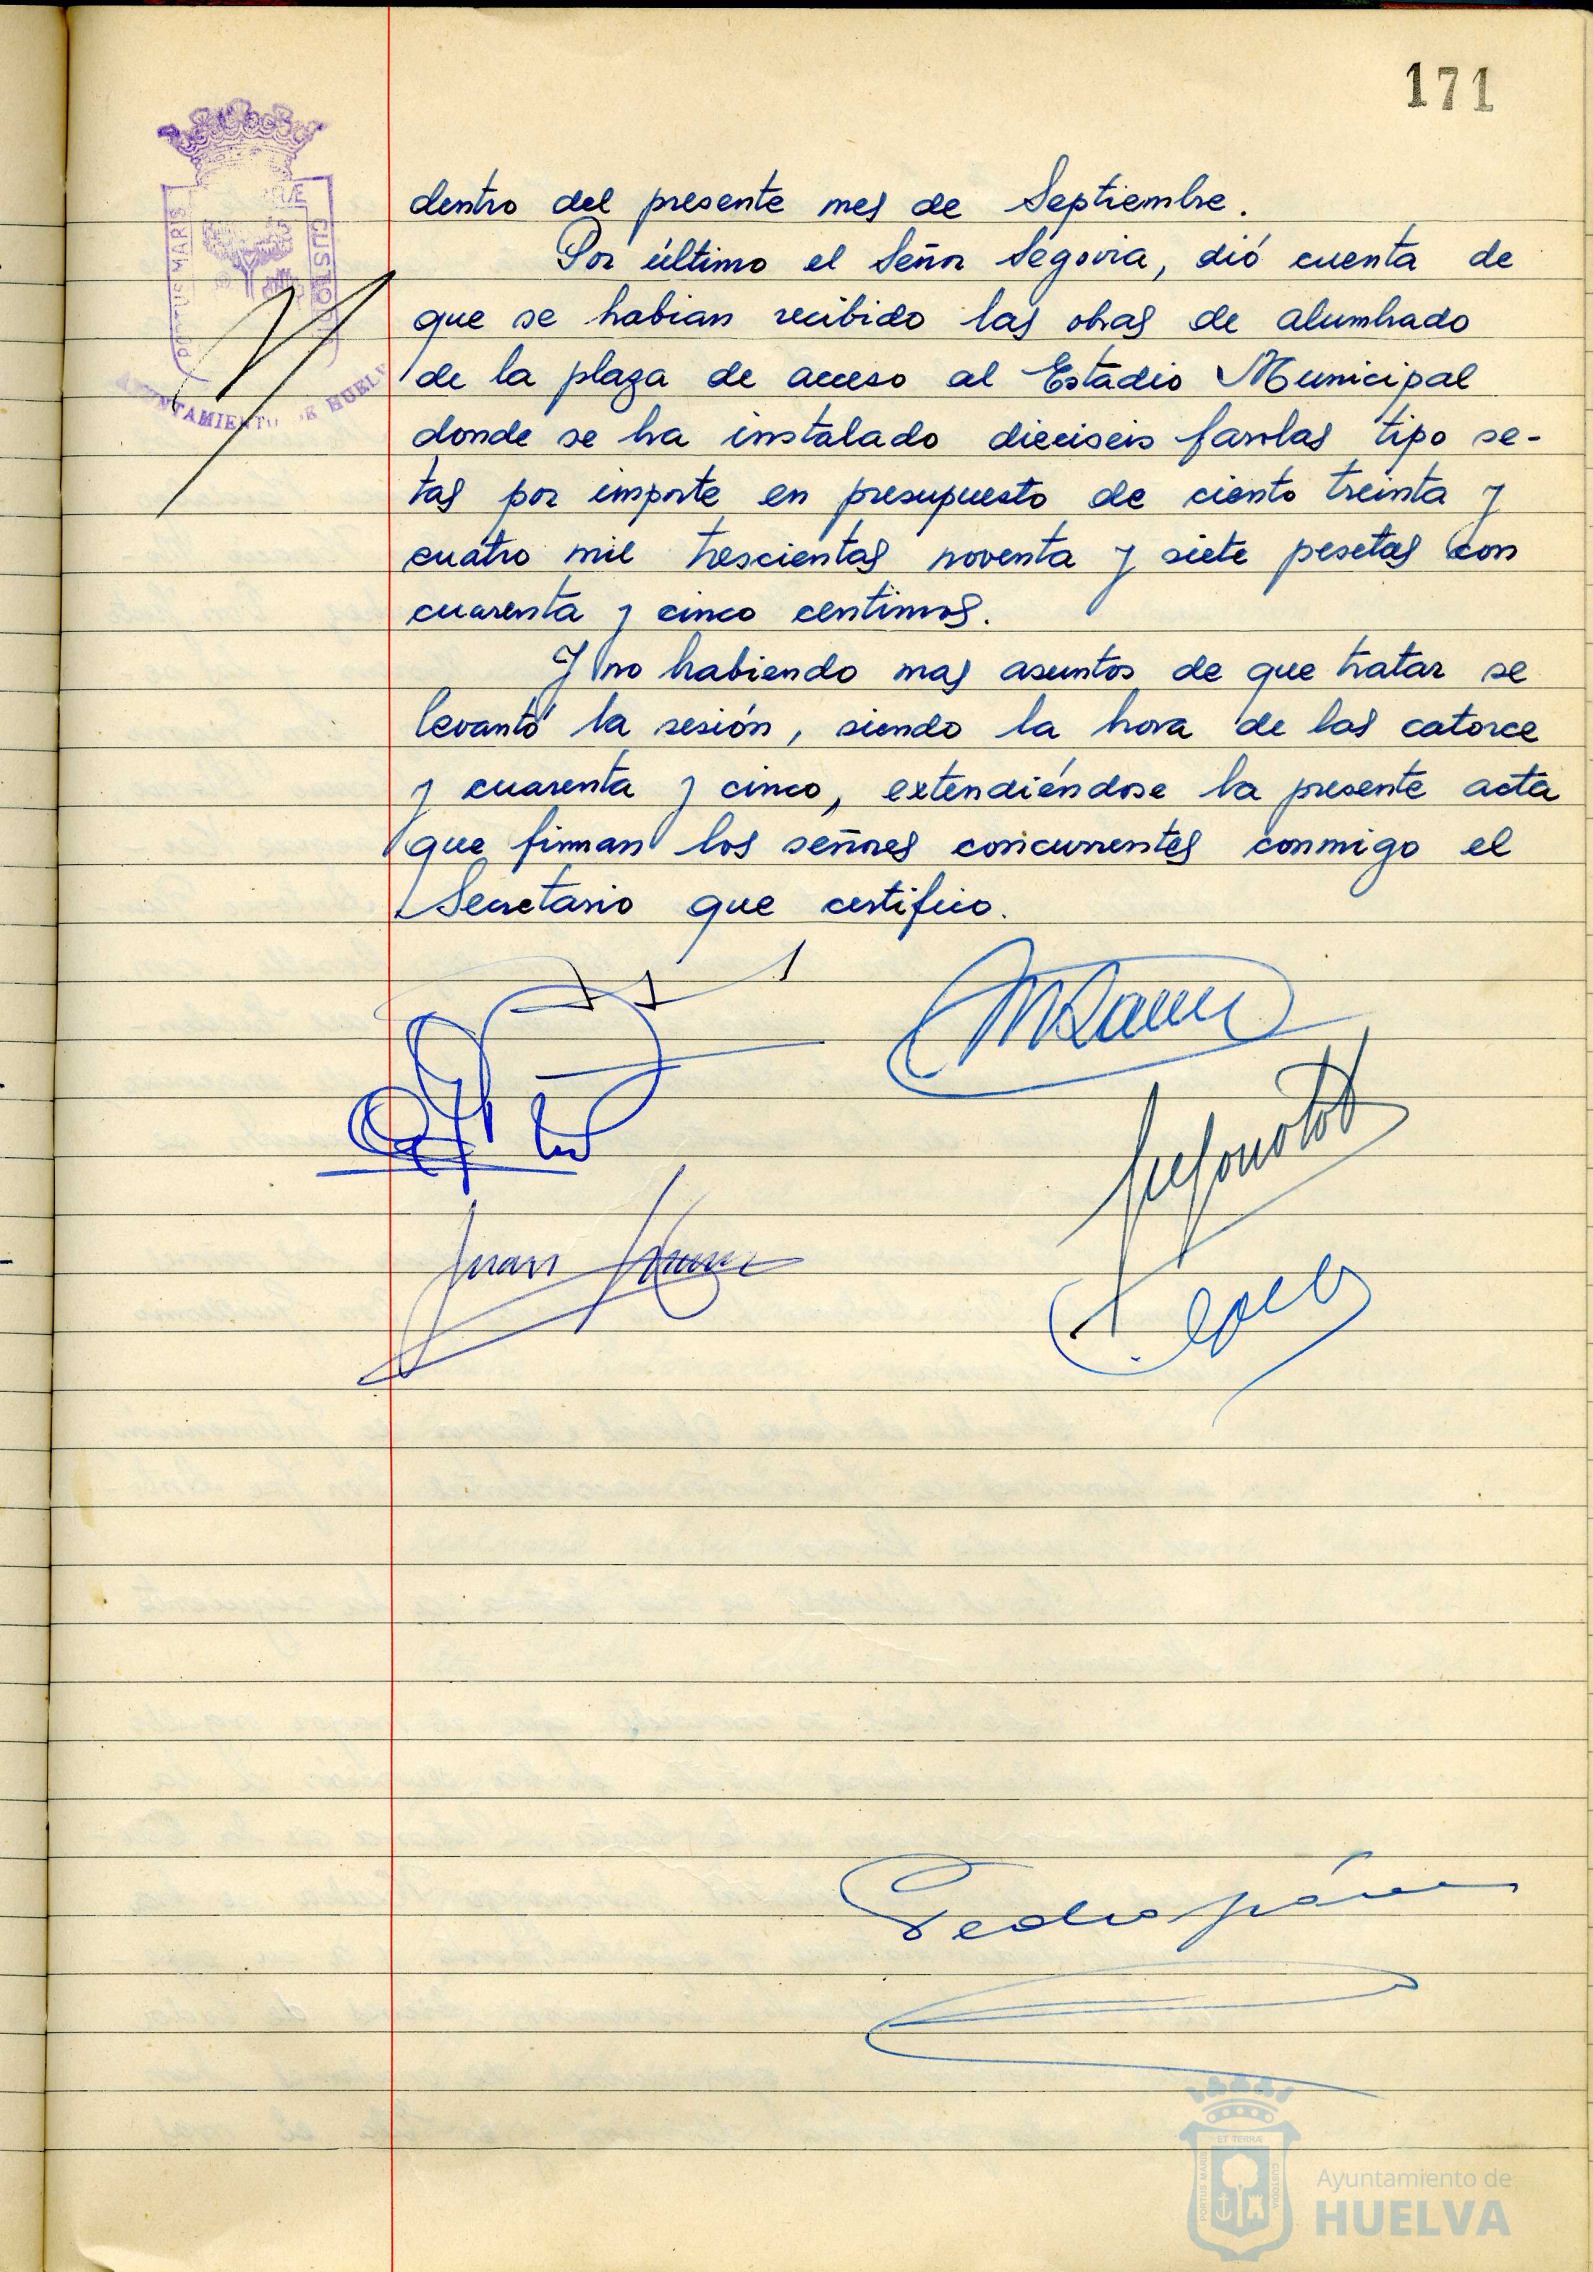 171
PORTUS MARIS
CUSTODI
AYUNTAMIENTO DE HUELVA
dentro del presente mes de Septiembre.
Por último el Señor Segovia, dió cuenta de
que se habian recibido las obras de alumbrado
de la plaza de acceso al Estadio Municipal
donde se ha instalado dieciseis farolas tipo se-
tas por importe en presupuesto de ciento treinta y
cuatro mil trescientas noventa y siete pesetas con
cuarenta y cinco centimos.
Y no habiendo mas asuntos de que tratar se
levantó la sesión, siendo la hora de las catorce
y cuarenta y cinco, extendiéndose la presente acta
que firman los señores concurrentes conmigo el
Secretario que certifico.
Juan
Pedro
ET TERRÆ
PORTUS MARIS
CUSTODIA
Ayuntamiento de
HUELVA